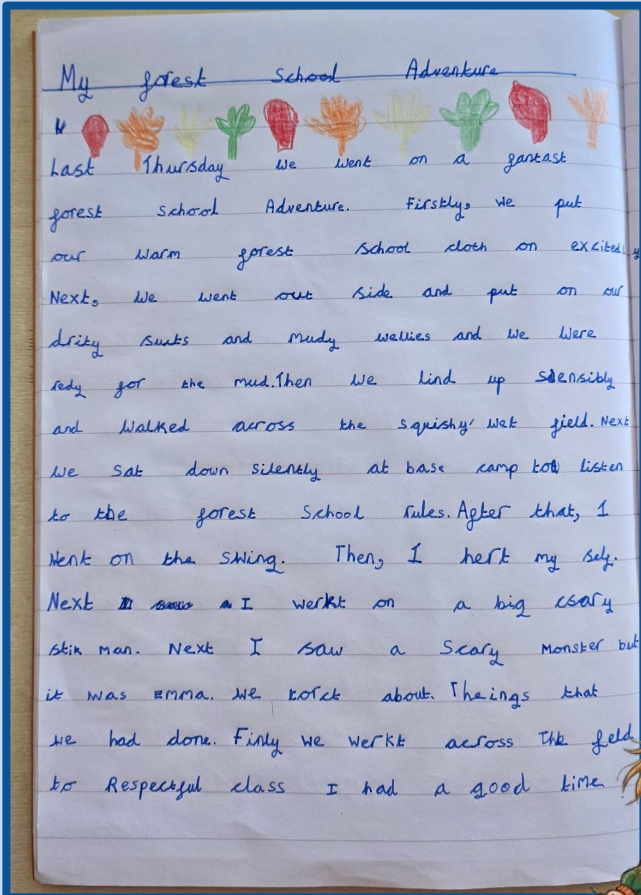 My forest School Adventure
Last Thursday we went on a fantast
forest School Adventure. Firstly, we put
our warm forest school cloth on excitedly
Next, we went out side and put on our
drity suits and mudy wellies and we were
redy for the mud. Then we lind up sensibly
and walked across the squishy, wet field. Next
we sat down silently at base camp to listen
to the forest School rules. After that, I
went on the swing. Then, I hert my self.
Next I werkt on a big csary
stik man. Next I saw a scary monster but
it was EMMA. We torct about. Theings that
we had done. Finly we werkt across the feld
to Respectful class I had a good time